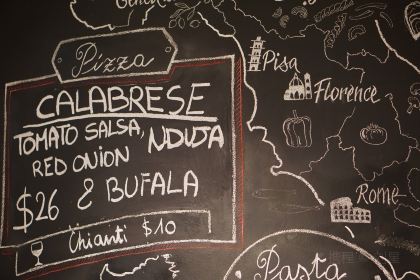 Pizza
CALABRESE
TOMATO SALSA, NDUJA
RED ONION
& BUFALA
$26
Chianti $10
Pisa
Florence
Rome
Pasta